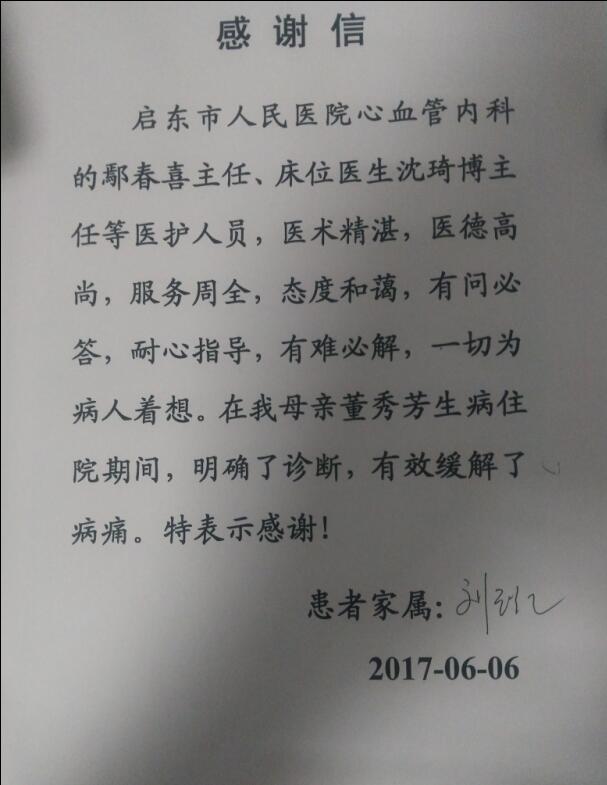 感谢信
启东市人民医院心血管内科
的鄢春喜主任、床位医生沈琦博主
任等医护人员，医术精湛，医德高
尚，服务周全，态度和蔼，有问必
答，耐心指导，有难必解，一切为
病人着想。在我母亲董秀芳生病住
院期间，明确了诊断，有效缓解了
病痛。特表示感谢！
患者家属：刘
2017-06-06